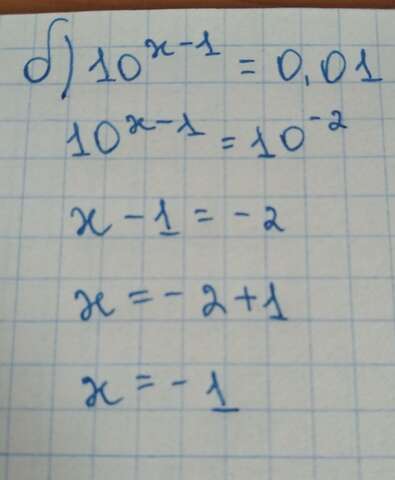 б) 10^{x-1} = 0,01
10^{x-1} = 10^{-2}
x - 1 = - 2
x = - 2 + 1
x = - 1